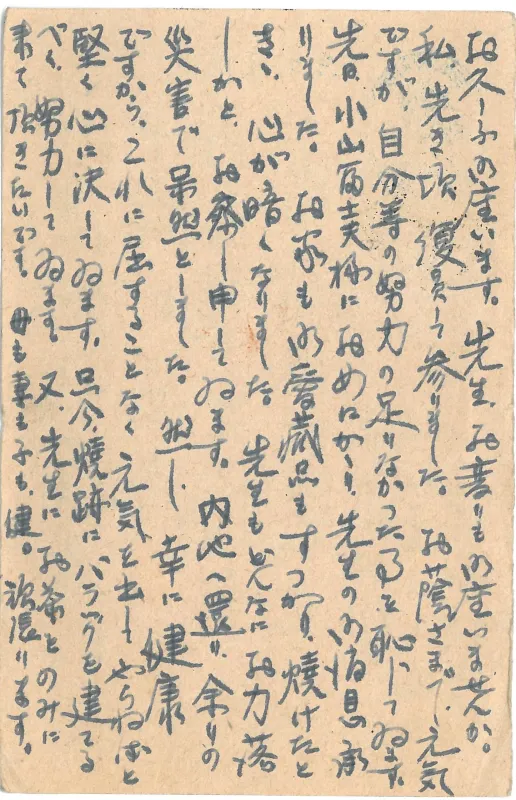 お久しう御座います。先生、お変りも御座いませんか。
私、先き頃復員して参りました。お蔭さまで、元気
ですが、自分等の努力の足りなかった事を恥ぢてゐます。
先日、小山富士夫様にお めにかゝり、先生の御消息承
りました。お家も御愛蔵品もすつかり、焼けたと
きゝ、心が暗くなりました。先生もどんなにお力落
しかと、お察し申してゐます。内地へ還り、余りの
災害で呆然としました。然し、幸に健康
ですから、これに屈することなく元気を出してやらねばと
堅く心に決してゐます。只今焼跡にバラックを建てる
べく、努力してゐます。又、先生にお茶とのみに
来て頂きたいです。母も妻も子も、健。頑張ります。